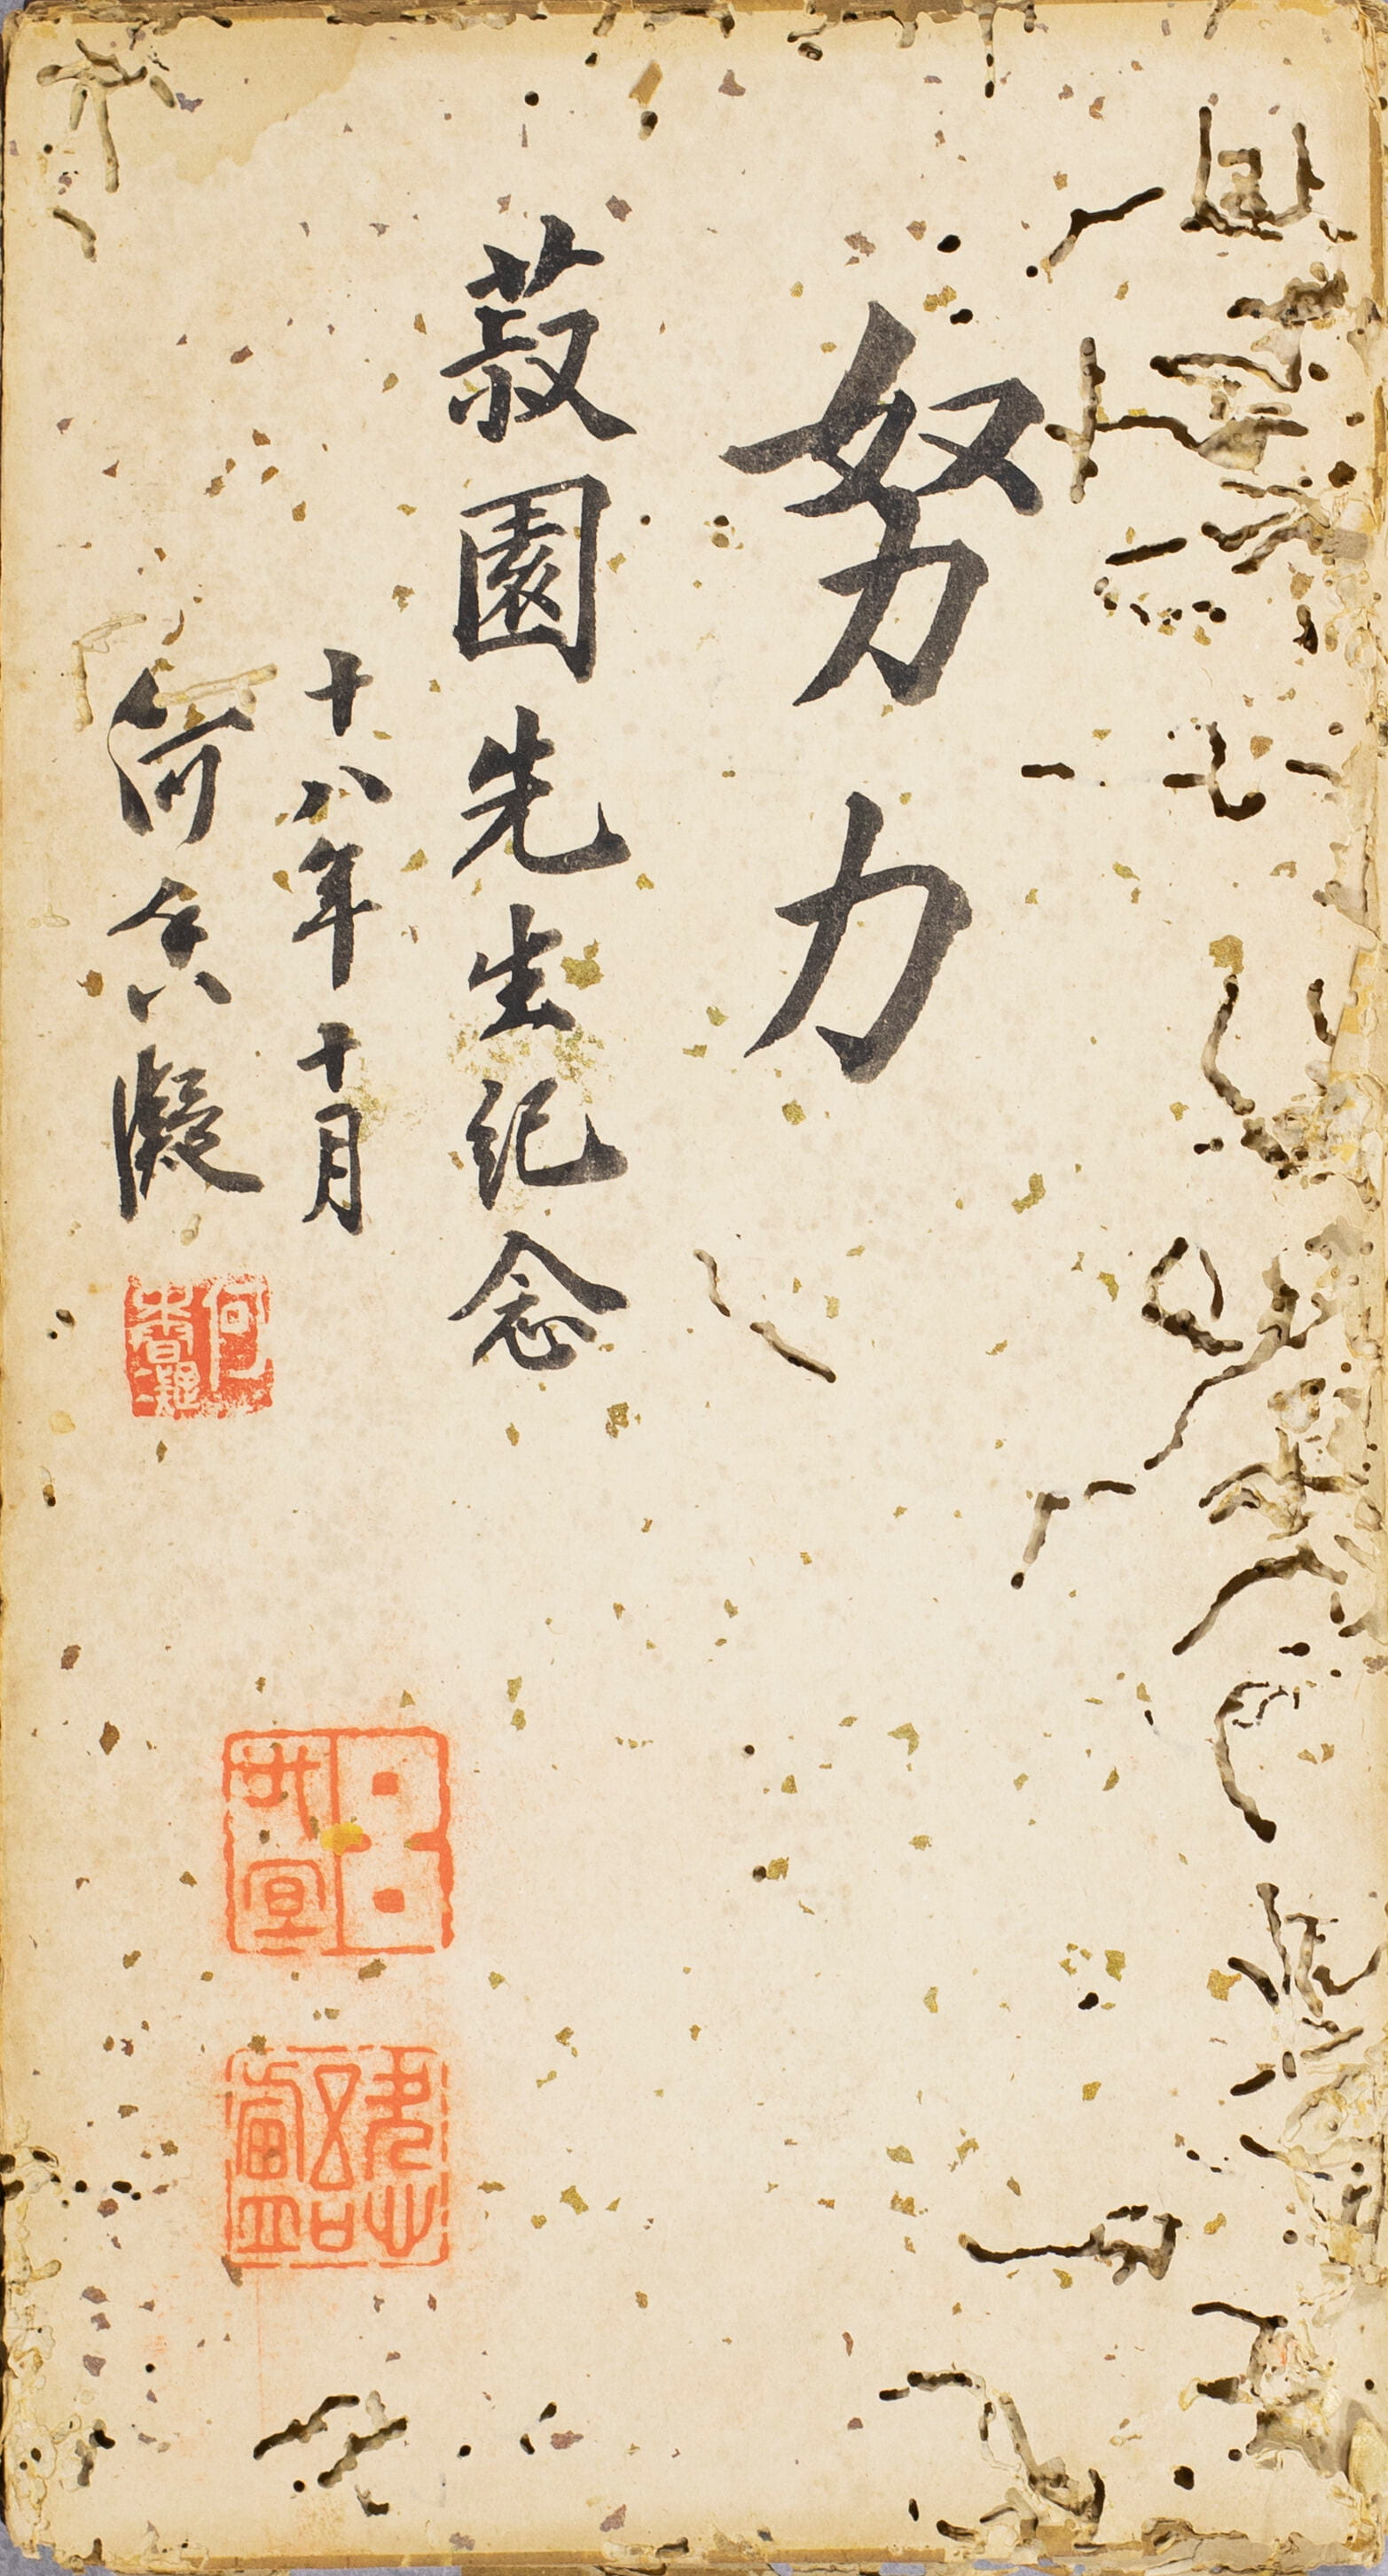 努力
菽園先生紀念
十八年十月
何香凝
何香凝